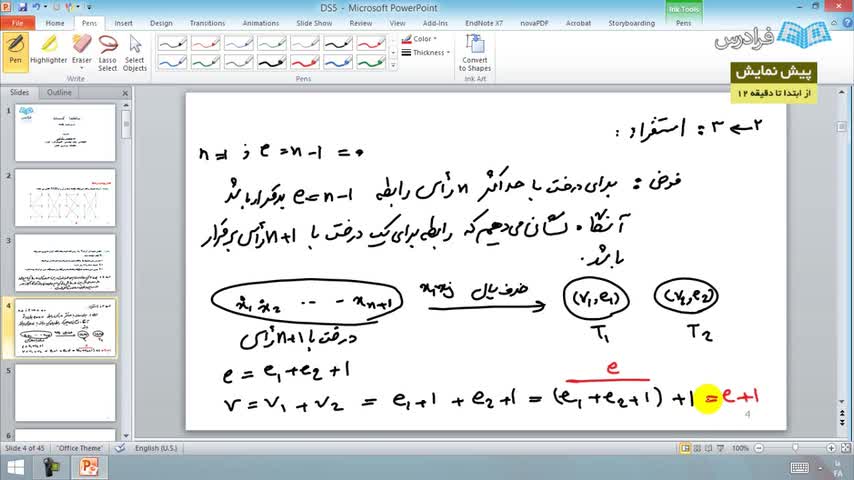 DS5 - PowerPoint
Ink Tools
File Home Pens Insert Design Transitions Animations Slide Show Review View Add-Ins EndNote X7 novaPDF Acrobat Storyboarding Pens
Pen Highlighter Eraser Lasso Select Select Objects
Color
Thickness
Convert to Shapes
Write Pens Ink Art
فرادرس
پیش نمایش
از ابتدا تا دقیقه ۱۲
Slides Outline
1
2
3
4
5
6
۲ → ۳: استقراء:
n=1 ; e=n-1=0
فرض: برای درخت با حداکثر n رأس رابطه e=n-1 برقرار باشد
آنگاه نشان می‌دهیم که رابطه برای یک درخت با n+1 رأس برقرار
باشد.
x1 x2 ... xn+1 xixj حذف یال (v1,e1) (v2,e2)
درخت با n+1 رأس T1 T2
e = e1+e2+1 e
v = v1+v2 = e1+1+e2+1 = (e1+e2+1)+1 = e+1
4
Slide 4 of 45 "Office Theme" English (U.S.) 100%
FA